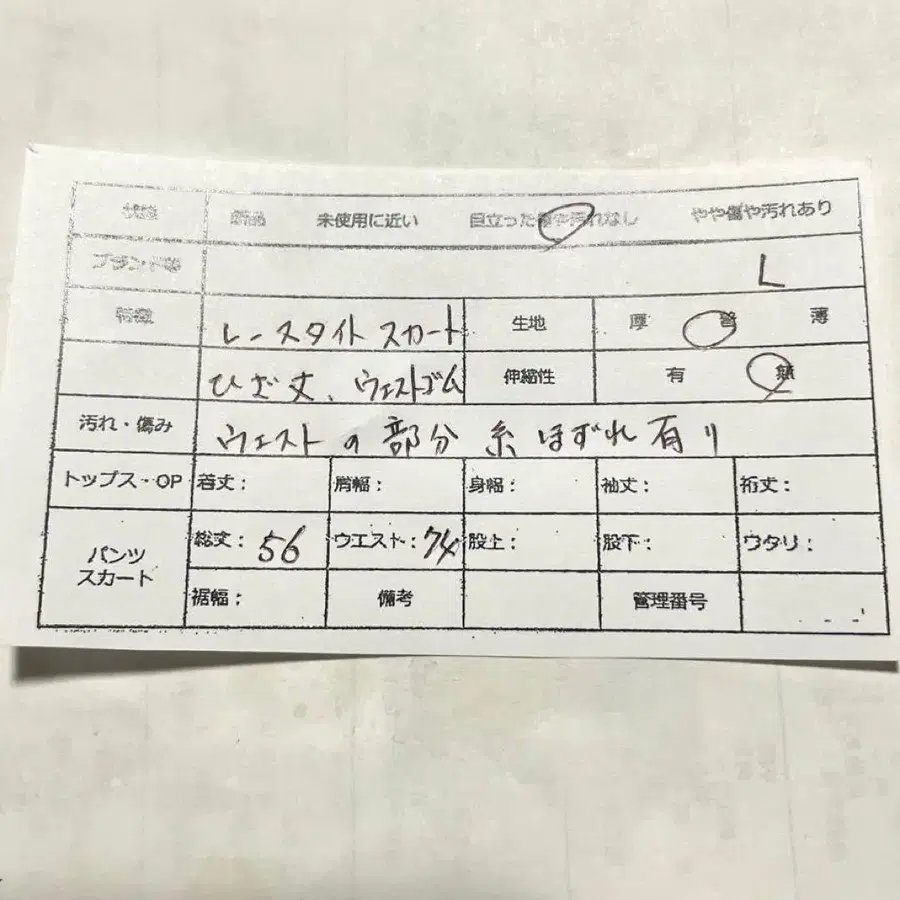 状態 新品 未使用に近い 目立った傷や汚れなし やや傷や汚れあり
ブランド等 L
特徴 レースタイトスカート 生地 厚 普 薄
ひざ丈、ウエストゴム 伸縮性 有 無
汚れ・傷み ウエストの部分 糸ほずれ有り
トップス・OP 着丈: 肩幅: 身幅: 袖丈: 裄丈:
パンツ スカート 総丈: 56 ウエスト: 74 股上: 股下: ワタリ:
裾幅: 備考 管理番号